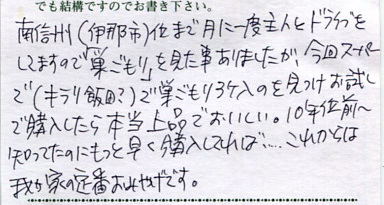 でも結構ですのでお書き下さい。
南信州(伊那市)位まで月に一度主人とドライブを
してますので「巣ごもり」を見た事ありましたが、今回スーパー
で(キラリ飯田?)で巣ごもり3ケ入のを見つけお試し
で購入したら本当上品でおいしい。10年位前〜
知ってたのにもっと早く購入してれば…。これからは
我が家の定番おみやげです。